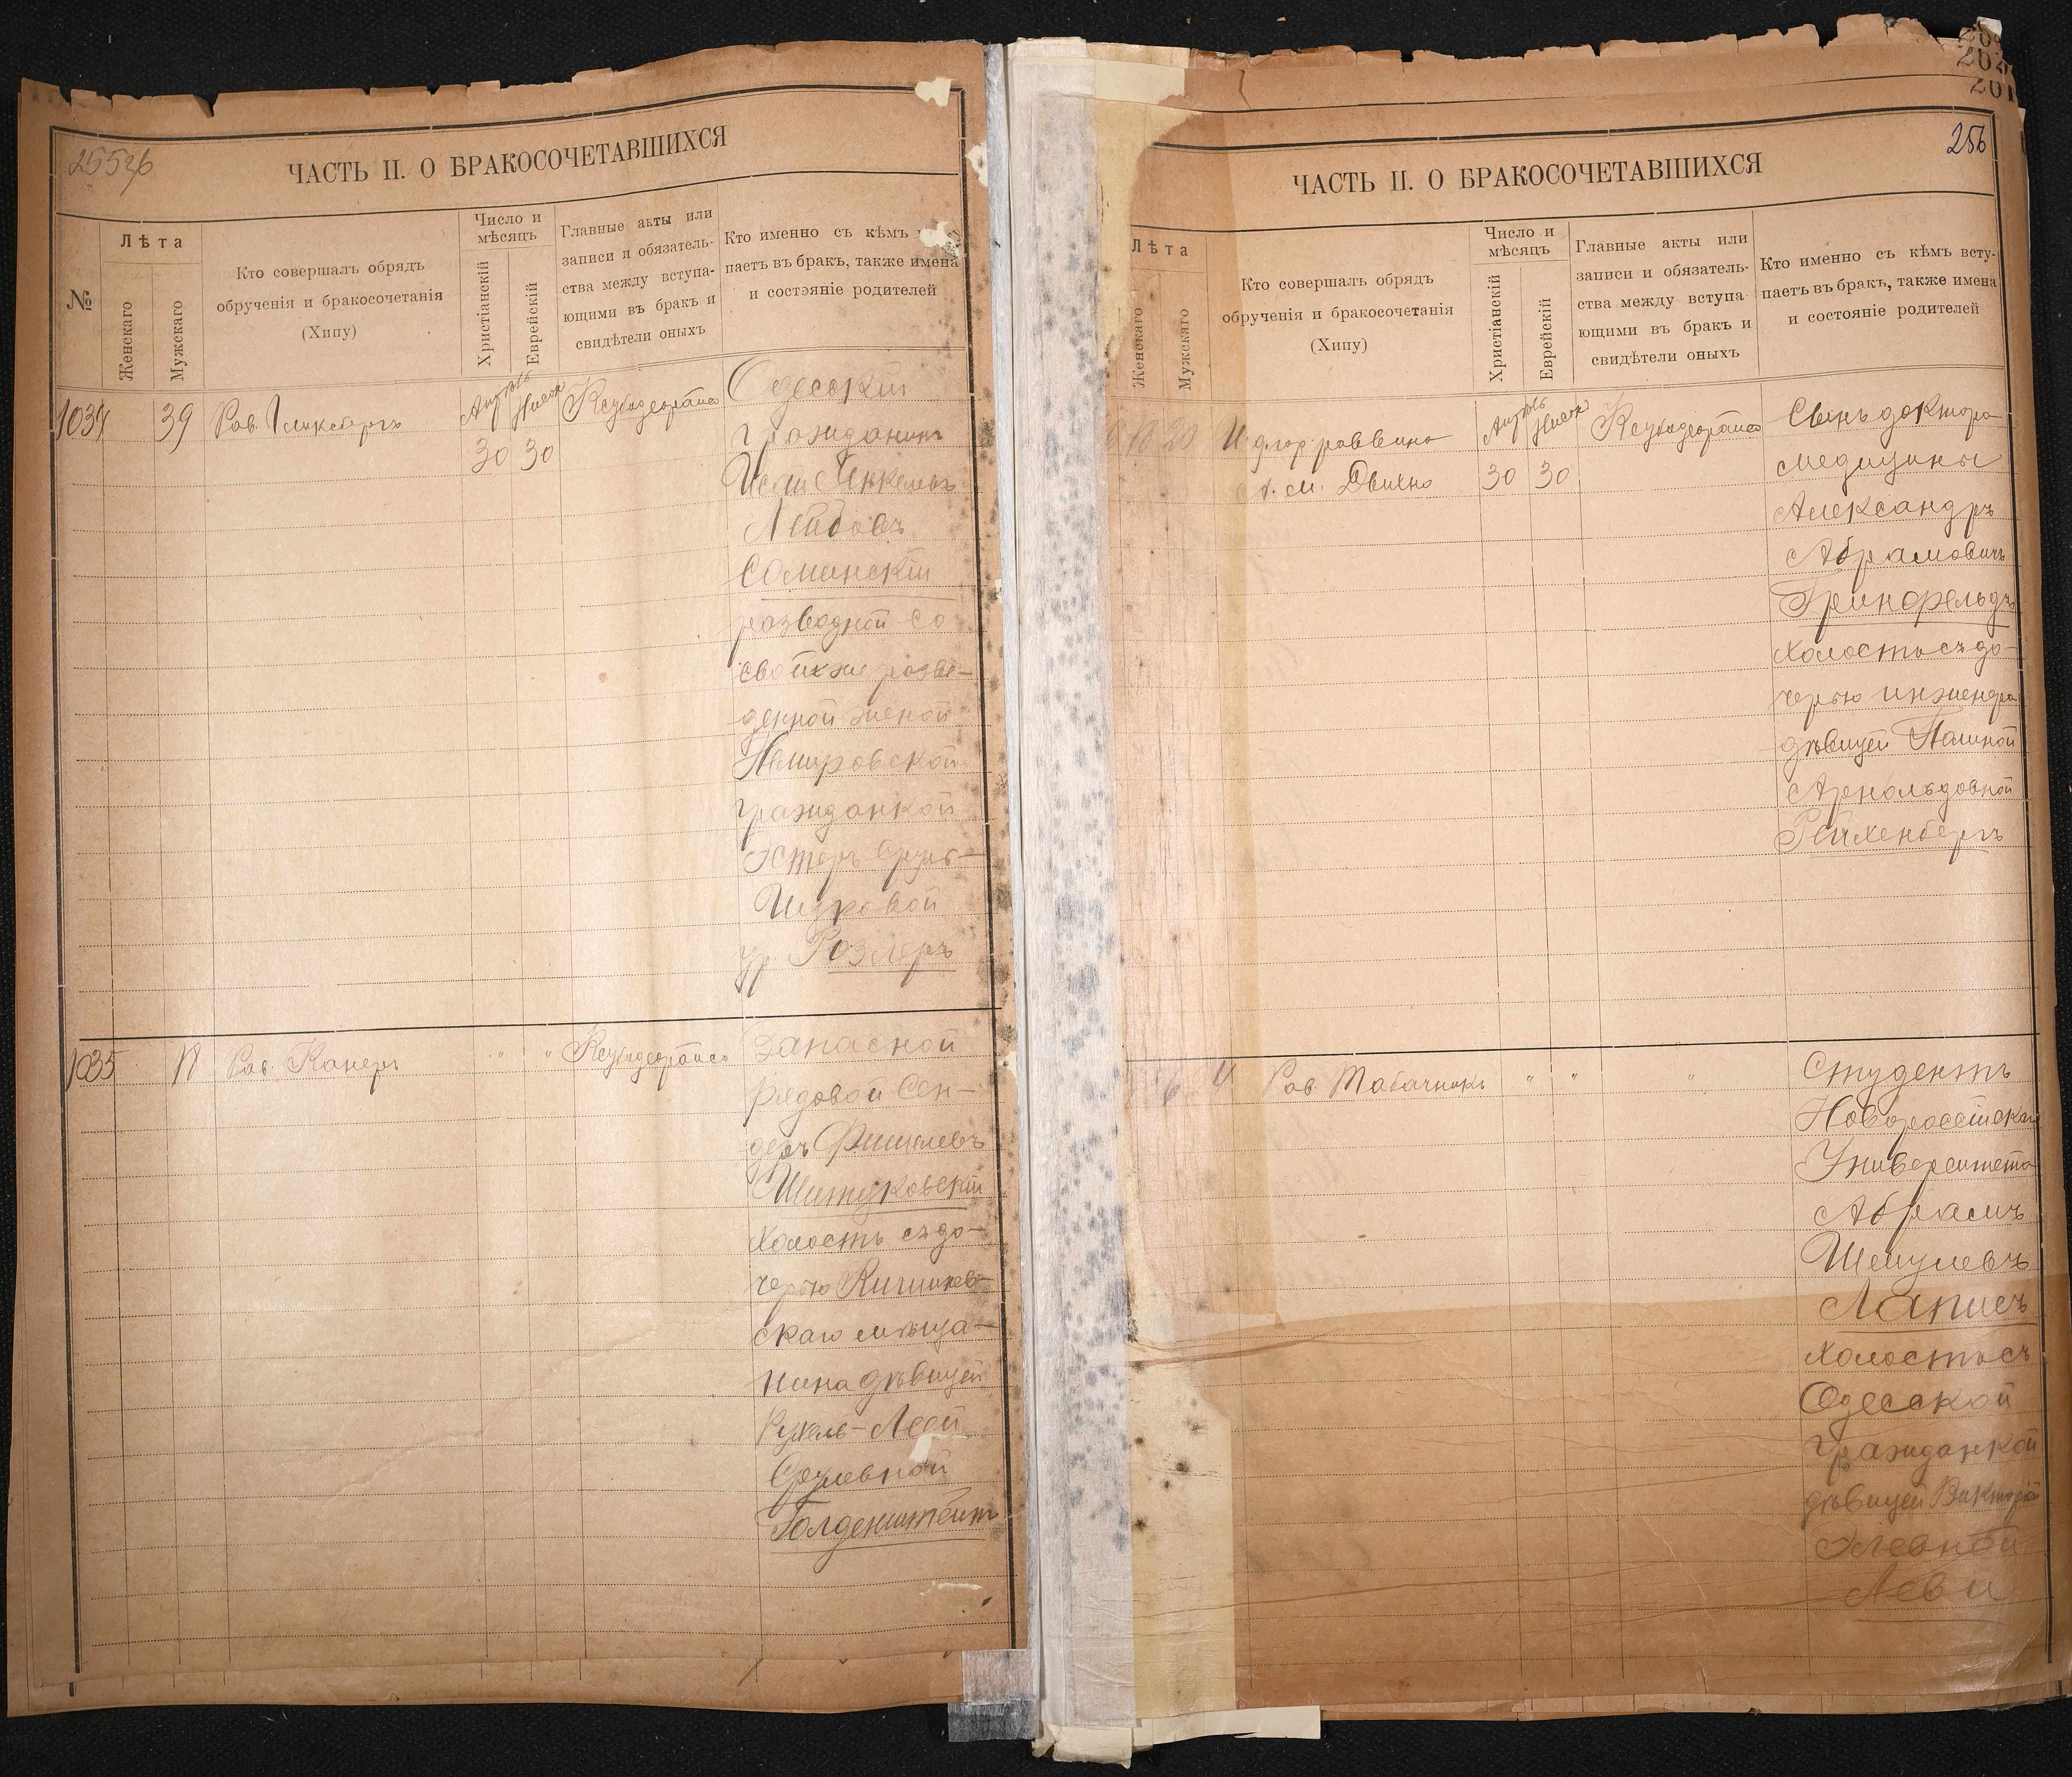 255зб
ЧАСТЬ II. О БРАКОСОЧЕТАВШИХСЯ
№
Лѣта
Женскаго
Мужскаго
Кто совершалъ обрядъ
обрученія и бракосочетанія
(Хипу)
Число и
мѣсяцъ
Христіанскій
Еврейскій
Главные акты или
записи и обязатель-
ства между вступа-
ющими въ бракъ и
свидѣтели оныхъ
Кто именно съ кѣмъ
паетъ въ бракъ, также имена
и состояніе родителей
1034
39
Рав.
Апрѣль
30
Нисон
30
Одесскій
гражданинъ
Янкелевъ
Лейбовъ
Сominскій
разводной со
своей же разве-
денной женой
Немировской
гражданкой
Эстеръ Сруль-
Ицковой
ур. Розлеръ
1035
18
Рав. Канеръ
" "
Запасной
рядовой Сен-
деръ Фишелевъ
Шитуковскій
холостъ съ до-
черью Кишинев-
скаго мѣща-
нина дѣвицей
Рухель-Леей
Срулевной
Голденштейнъ
264
262
261
256
ЧАСТЬ II. О БРАКОСОЧЕТАВШИХСЯ
Лѣта
Женскаго
Мужскаго
Кто совершалъ обрядъ
обрученія и бракосочетанія
(Хипу)
Число и
мѣсяцъ
Христіанскій
Еврейскій
Главные акты или
записи и обязатель-
ства между вступа-
ющими въ бракъ и
свидѣтели оныхъ
Кто именно съ кѣмъ всту-
паетъ въ бракъ, также имена
и состояніе родителей
20
раввина
Апрѣль
30
Нисон
30
Сынъ доктора
медицины
Александръ
Абрамовичъ
Гринфельдъ
холостъ съ до-
черью инженера
дѣвицей Полиной
Арнольдовной
Рейхенбергъ
Рав. Табачникъ
" " "
Студентъ
Новороссійскаго
Университета
Абрамъ
Шмулевъ
Лаписъ
холостъ съ
Одесской
гражданкой
дѣвицей Викторіей
Элевной
Леви